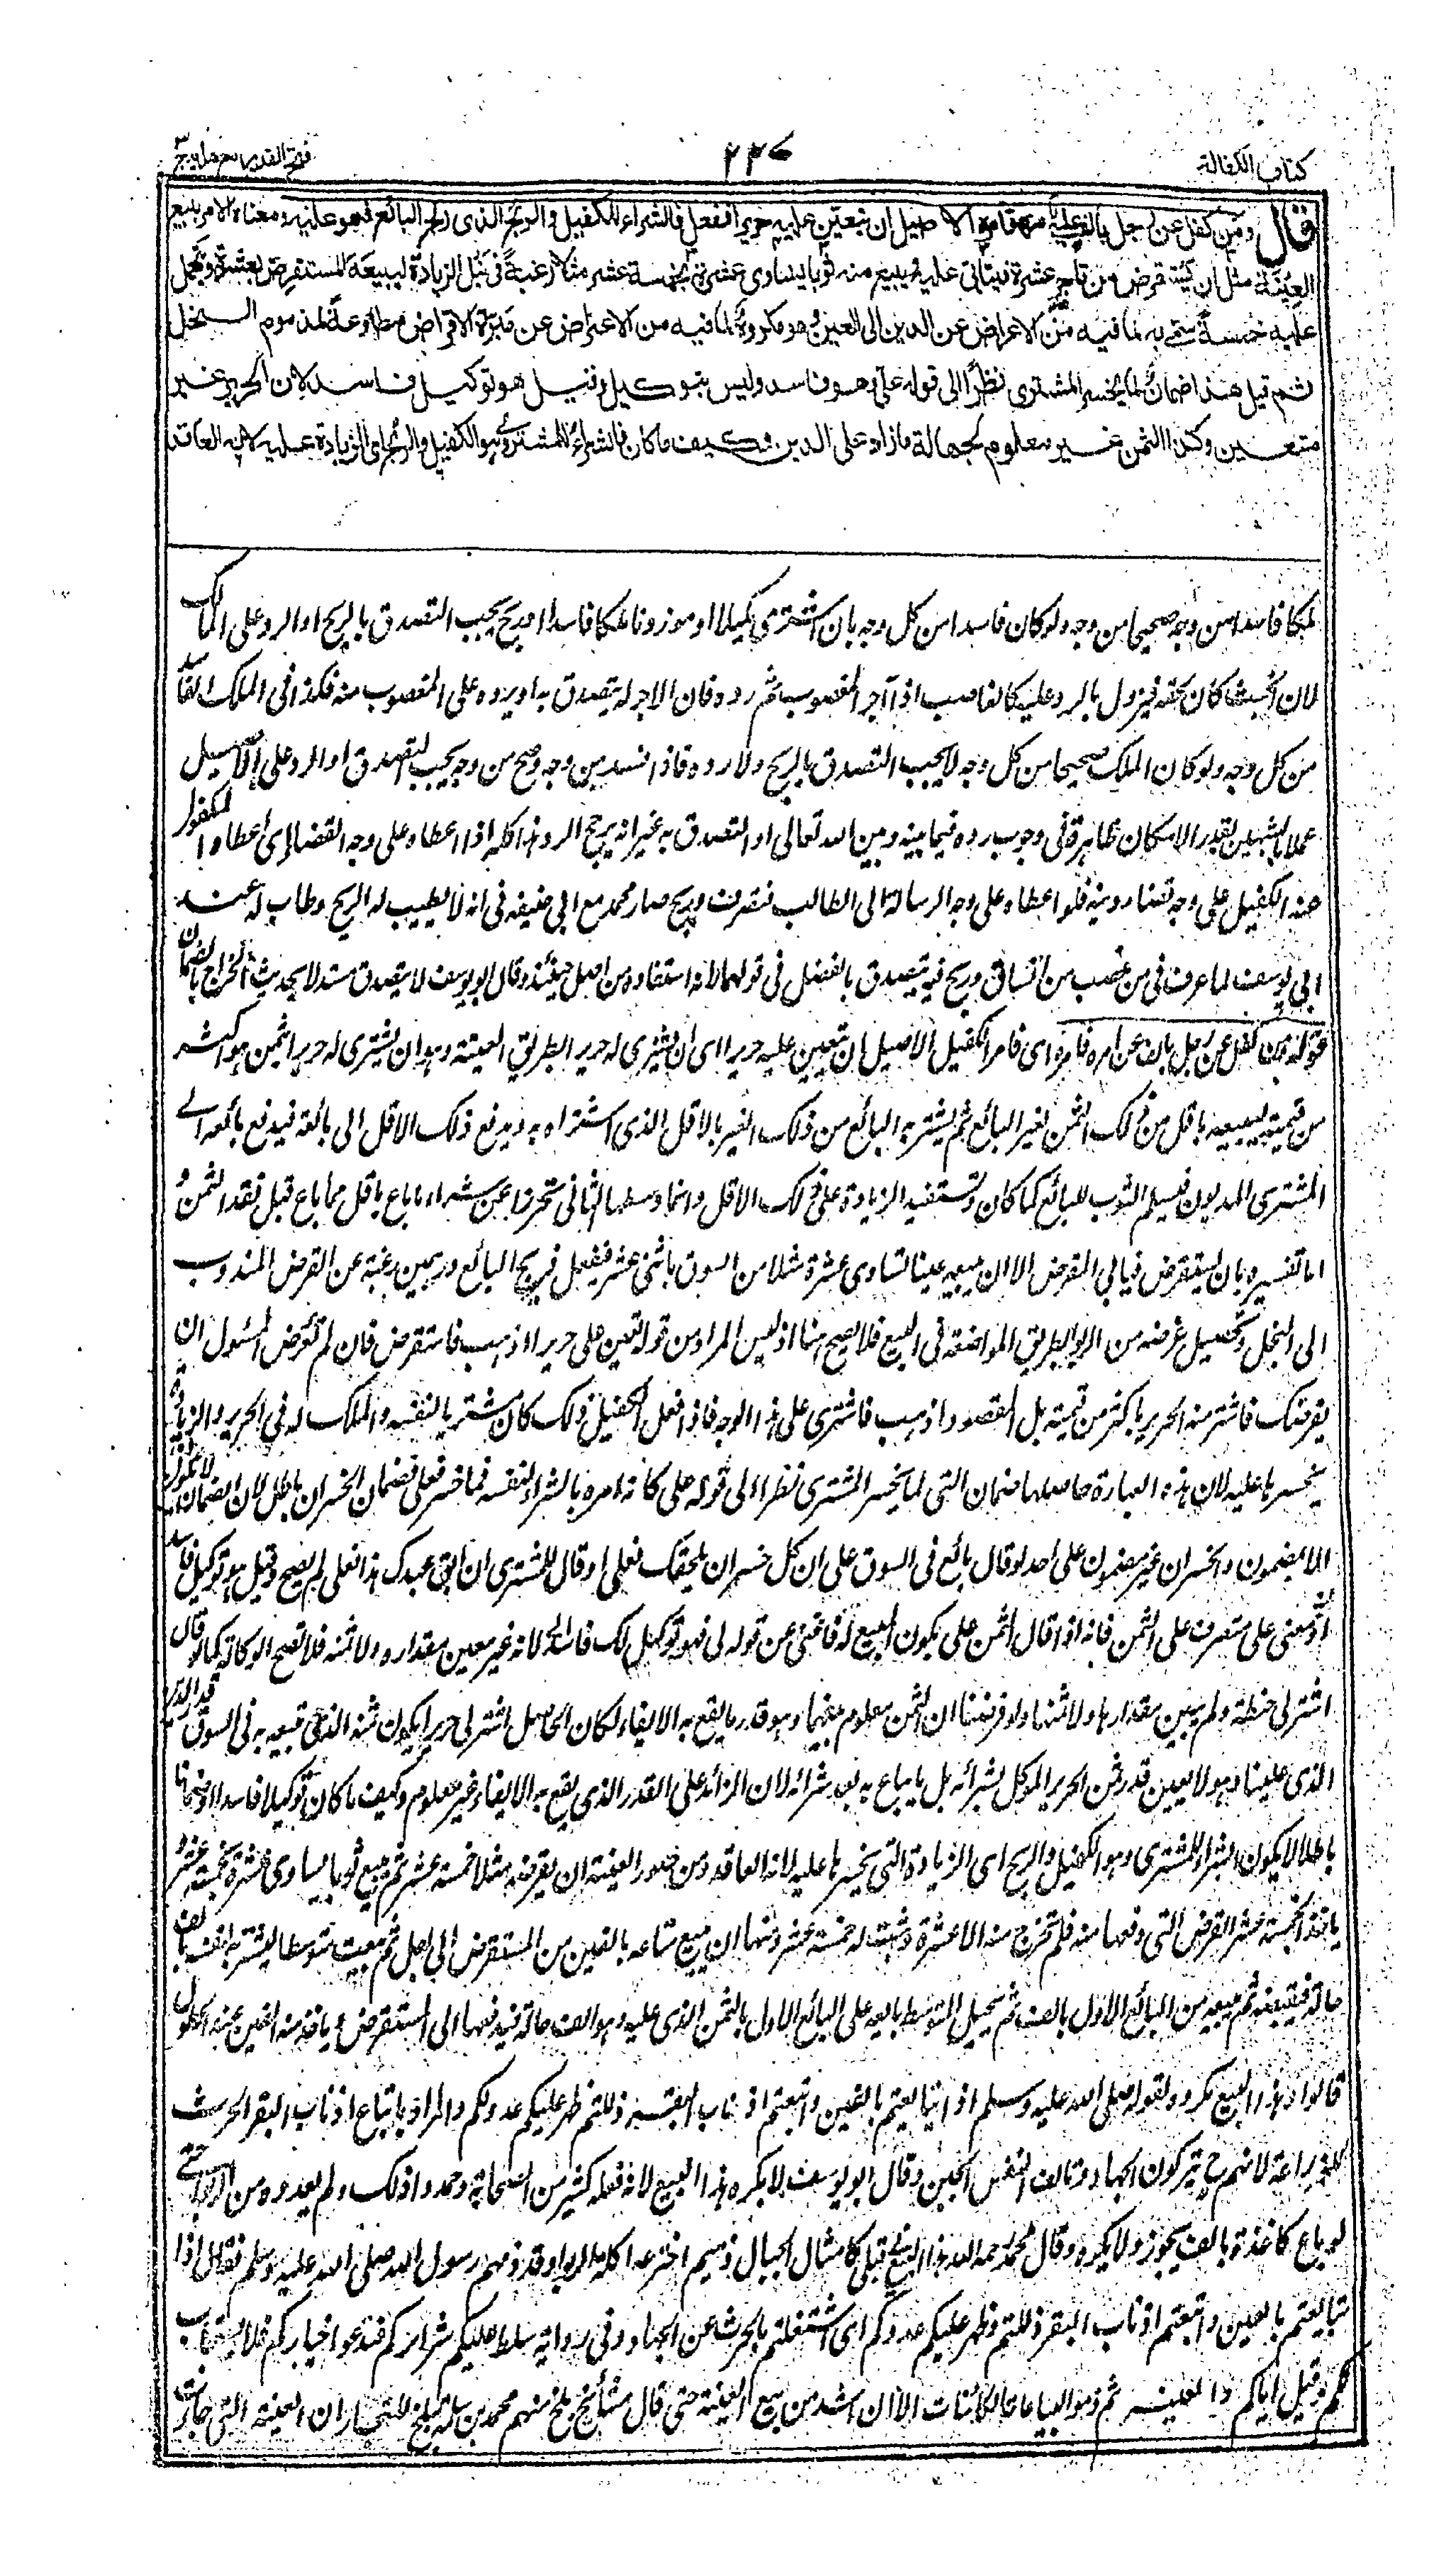 كتاب الكفالة
٢٢٧
فتح القدير مع هدايه ج ٣
قال ومن كفل عن رجل بالف عليه بامره فامره الاصيل ان يتعين عليه حريرا ففعل فالشراء للكفيل والربح الذى ربحه البائع فهو عليه ومعناه الامر ببيع
العينة مثل ان يستقرض من تاجر عشرة فيتابى عليه ويبيع منه ثوبا يساوى عشرة بخمسة عشر مثلا رغبة فى نيل الزيادة ليبيعه المستقرض بعشرة ويتحمل
عليه خمسة سمى به لما فيه من الاعراض عن الدين الى العين وهو مكروه لما فيه من الاعراض عن مبرة الاقراض مطاوعة لمذموم البخل
ثم قيل هذا ضمان لما يخسر المشترى نظرا الى قوله على وهو فاسد وليس بتوكيل وقيل هو توكيل فاسد لان الحرير غير
متعين وكذا الثمن غير معلوم لجهالة ما زاد على الدين وكيف ما كان فالشراء للمشترى وهو الكفيل والربح اى الزيادة عليه لانه العاقد
ملكا فاسدا من وجه صحيحا من وجه ولو كان فاسدا من كل وجه بان اشترى مكيلا او موزونا ملكا فاسدا وربح يجب التصدق بالربح او الرد على المالك
لان الخبث كان لحقه فيزول بالرد عليه كالغاصب اذا آجر المغصوب ثم رده فان الاجر له يتصدق به او يرده على المغصوب منه فكذا فى الملك الفاسد
من كل وجه ولو كان الملك صحيحا من كل وجه لا يجب التصدق بالربح ولا رده فاذا فسد من وجه وصح من وجه يجب التصدق او الرد على الاصيل
عملا بالشبهين بقدر الامكان ظاهره فى وجوب رده فيما بينه وبين الله تعالى او التصدق به غير انه يرجح الرد وهذا كله اذا اعطاه على وجه القضاء اى اعطاه المكفول
عنه الكفيل على وجه قضاء دينه فلو اعطاه على وجه الرسالة الى الطالب فتصرف وربح صار محمد مع ابى حنيفه فى انه لا يطيب له الربح وطاب له عند
ابى يوسف لما عرف فى من غصب من انسان وربح فيه يتصدق بالفضل فى قولهما لانه استفاده من اصل خبيث وقال ابو يوسف لا يتصدق مستدلا بحديث الخراج بالضمان
قوله ومن كفل عن رجل بالف عن امره فامره اى فامر الكفيل الاصيل ان يتعين عليه حريرا اى ان يشترى له حريرا بطريق العينة وهو ان يشترى له حريرا بثمن هو اكثر
من قيمته ليبيعه باقل من ذلك الثمن لغير البائع ثم يشتريه البائع من ذلك الغير بالاقل الذى اشتراه به ويدفع ذلك الاقل الى بائعه فيدفع بائعه الى
المشترى المديون فيسلم الثوب للبائع كما كان ويستفيد الزيادة على ذلك الاقل وانما وسطا الثانى تحرزا عن شراء ما باع باقل مما باع قبل نقد الثمن و
اما تفسيره بان يستقرض فيابى المقرض الا ان يبيعه عينا تساوى عشرة مثلا من السوق باثنى عشر فيفعل فيربح البائع درهمين رغبة عن القرض المندوب
الى البخل وتحصيل غرضه من الربوا بطريق المواضعة فى البيع فلا يصح هنا اذ ليس المراد من قوله تعين على حريرا اذهب فاستقرض فان لم يرض المسئول ان
يقرضك فاشتر منه الحرير باكثر من قيمته بل المقصود اذهب فاشترى على هذا الوجه فاذا فعل الكفيل ذلك كان مشتريا لنفسه والملك له فى الحرير والزيادة التى
يخسرها عليه لان هذه العبارة حاصلها ضمان التى لما يخسر المشترى نظرا الى قوله على كانه امره بالشراء لنفسه فما خسر فعلى فضمان الخسران باطل لان الضمان لا يكون
الا بمضمون والخسران غير مضمون على احد لو قال بائع فى السوق على ان كل خسران يلحقك فعلى او قال للمشترى ان ابق عبدك هذا فعلى لم يصح وقيل هو توكيل فاسد
ومعنى على منصرف على الثمن فانه اذا قال الثمن على يكون المبيع له فاغنى عن قوله لى فهو توكيل لك فاسد لانه غير معين مقداره ولا ثمنه فلا تصح الوكالة كما لو قال
اشتر لى حنطة ولم يبين مقدارها ولا ثمنها ولو فرضنا ان الثمن معلوم بينهما وهو قدر ما يقع به الايفاء لكان الحاصل اشتر لى حريرا يكون ثمنه الذى تبيعه به فى السوق قدر الدين
الذى علينا وهو لا يعين قدر ثمن الحرير الموكل بشرائه بل ما يباع به بعد شرائه لان الزائد على القدر الذى يقع به الايفاء غير معلوم وكيف ما كان توكيلا فاسدا او ضمانا
باطلا لا يكون الشراء للمشترى وهو الكفيل والربح اى الزيادة التى يخسرها عليه لانه العاقد ومن صور العينة ان يقرضه مثلا خمسة عشر ثم يبيع ثوبا يساوى عشرة بخمسة عشر و
ياخذ الخمسة عشر القرض التى دفعها منه فلم تخرج منه الا عشرة وثبت له خمسة عشر ومنها ان يبيع متاعه بالفين من المستقرض الى اجل ثم يبعث متوسطا يشتريه لنفسه بالف
حالة فيقبضه ثم يبيعه من البائع الاول بالف ثم يحيل المتوسط بائعه على البائع الاول بالثمن الذى عليه وهو الف حالة فيدفعها الى المستقرض وياخذ منه الفين عند الحلول
قالوا وهذا البيع مكروه لقوله صلى الله عليه وسلم اذا تبايعتم بالعين واتبعتم اذناب البقر ذللتم وظهر عليكم عدوكم والمراد باتباع اذناب البقر الحرث
للزراعة لانهم ح يتركون الجهاد وتالف النفس الجبن وقال ابو يوسف لا يكره هذا البيع لانه فعله كثير من الصحابة وحمدوا ذلك ولم يعدوه من الربوا حتى
لو باع كاغذة بالف يجوز ولا يكره وقال محمد رحمه الله هذا البيع فى قلبى كامثال الجبال ذميم اخترعه اكلة الربوا وقد ذمهم رسول الله صلى الله عليه وسلم فقال اذا
تبايعتم بالعين واتبعتم اذناب البقر ذللتم وظهر عليكم عدوكم اى اشتغلتم بالحرث عن الجهاد وفى رواية سلط عليكم شراركم فيدعو خياركم فلا يستجاب
لكم وقيل اياكم والعينة ثم ذموا البياعات الكائنات الآن اشد من بيع العينة حتى قال مشائخ بلخ منهم محمد بن سلمة للتجار ان العينة التى جاءت